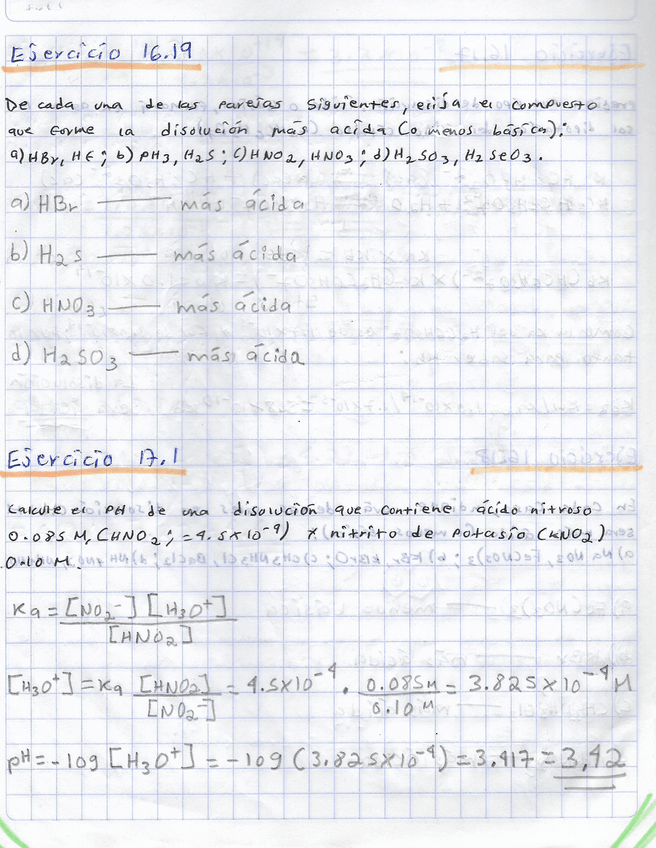 Ejercicio 16.19
De cada una de las parejas siguientes, elija el compuesto
que forme la disolución más acida (o menos básica):
a) HBr, HF; b) PH3, H2S; c) HNO2, HNO3; d) H2SO3, H2SeO3.
a) HBr — más ácida
b) H2S — más ácida
c) HNO3 — más ácida
d) H2SO3 — más ácida
Ejercicio 17.1
Calcule el PH de una disolución que contiene ácido nitroso
0.085 M, (HNO2; = 4.5x10^-4) y nitrito de potasio (KNO2)
0.10 M.
Ka = [NO2^-] [H3O^+] / [HNO2]
[H3O^+] = Ka [HNO2] / [NO2^-] = 4.5x10^-4 · 0.085M / 0.10 M = 3.825x10^-4 M
pH = -log [H3O^+] = -log (3.825x10^-4) = 3.417 = 3,42